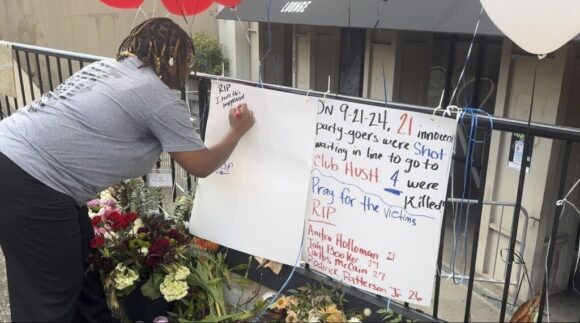 LOUNGE
RIP
I hate this
happened
RIP
ON 9-21-24, 21 innocent
party-goers were SHOT
waiting in line to go to
Club HusH. 4 were
Killed!
Pray for the victims
RIP
Anitra Holloman 21
Tahj Booker 27
Carlos McCain 27
Roderick Patterson Jr. 26